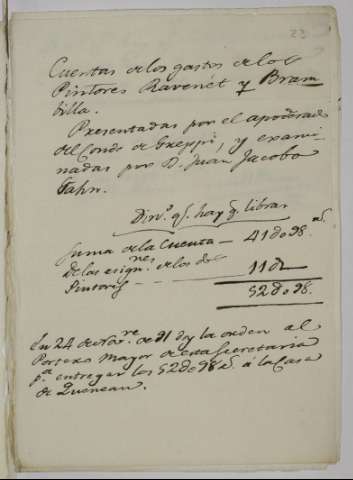 23
Cuentas de los gastos de los
Pintores Ravenet y Bram
billa.
Presentadas por el apoderado
del Conde de Greppi, y exami
nadas por D. Juan Jacobo
Gahn.
Din.º q.e hay q.e librar
Suma de la Cuenta — 41
de las asign.nes de los dos
Pintores — — 11
52
En 24 de de 91 doy la orden al
Portero Mayor de esta Secretaria
p.a entregar los 52 98 à la Casa
de Queneau.